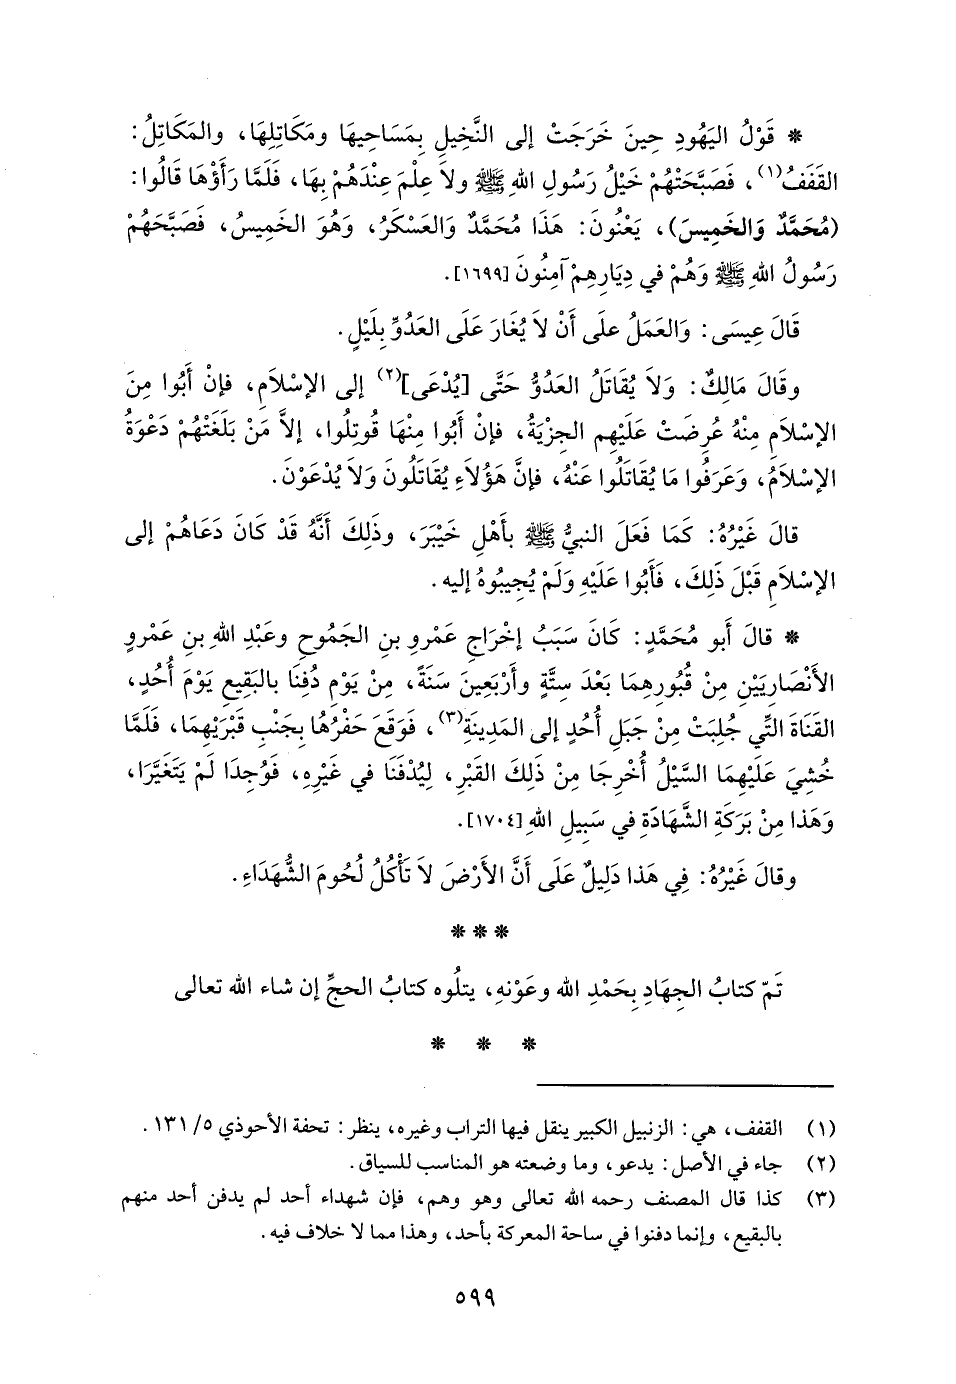 * قَوْلُ اليَهُودِ حِينَ خَرَجَتْ إلى النَّخِيلِ بِمَسَاحِيهَا ومَكَاتِلِهَا، والمَكَاتِلُ:
القَفَفُ(١)، فَصَبَّحَتْهُمْ خَيْلُ رَسُولِ اللهِ ﷺ ولاَ عِلْمَ عِنْدَهُمْ بِهَا، فَلَمَّا رَأَوْهَا قَالُوا:
(مُحَمَّدٌ وَالخَمِيسَ)، يَعْنُونَ: هَذَا مُحَمَّدٌ والعَسْكَرُ، وَهُوَ الخَمِيسُ، فَصَبَّحَهُمْ
رَسُولُ اللهِ ﷺ وَهُمْ في دِيَارِهِمْ آمِنُونَ [١٦٩٩].
قَالَ عِيسَى: وَالعَمَلُ علَى أَنْ لاَ يُغَارَ عَلَى العَدُوِّ بِلَيْلٍ.
وقَالَ مَالِكٌ: وَلاَ يُقَاتَلُ العَدُوُّ حَتَّى [يُدْعَى](٢) إلى الإسْلاَمِ، فإنْ أَبُوا مِنَ
الإسْلاَمِ مِنْهُ عُرِضَتْ عَلَيْهِم الجِزْيَةُ، فإنْ أَبُوا مِنْهَا قُوتِلُوا، إلاَّ مَنْ بَلَغَتْهُمْ دَعْوَةُ
الإسْلاَمُ، وَعَرَفُوا مَا يُقَاتَلُوا عَنْهُ، فإنَّ هَؤُلاَءِ يُقَاتَلُونَ وَلاَ يُدْعَوْنَ.
قالَ غَيْرُهُ: كَمَا فَعَلَ النبيُّ ﷺ بأَهْلِ خَيْبَرَ، وذَلِكَ أَنَّهُ قَدْ كَانَ دَعَاهُمْ إلى
الإسْلاَمِ قَبْلَ ذَلِكَ، فَأَبُوا عَلَيْهِ وَلَمْ يُجِيبُوهُ إليه.
* قالَ أَبو مُحَمَّدٍ: كَانَ سَبَبُ إخْرَاجِ عَمْرِو بنِ الجَمُوحِ وعَبْدِ اللهِ بنِ عَمْرٍو
الأَنْصَارِيَيْنِ مِنْ قُبُورِهِمَا بَعْدَ سِتَّةٍ وأَرْبَعِينَ سَنَةً، مِنْ يَوْمِ دُفِنَا بالبَقِيعِ يَوْمَ أُحُدٍ،
القَنَاةَ التِّي جُلِبَتْ مِنْ جَبَلِ أُحُدٍ إلى المَدِينَةِ(٣)، فَوَقَعَ حَفْرُهَا بِجَنْبِ قَبْرَيْهِمَا، فَلَمَّا
خُشِيَ عَلَيْهِمَا السَّيْلُ أُخْرِجَا مِنْ ذَلِكَ القَبْرِ، لِيُدْفَنَا في غَيْرِهِ، فَوُجِدَا لَمْ يَتَغَيَّرَا،
وَهَذَا مِنْ بَرَكَةِ الشَّهَادَةِ في سَبِيلِ اللهِ [١٧٠٤].
وقالَ غَيْرُهُ: فِي هَذَا دَلِيلٌ عَلَى أَنَّ الأَرْضَ لاَ تَأْكُلُ لُحُومَ الشُّهَدَاءِ.
***
تَمّ كتابُ الجِهَادِ بِحَمْدِ الله وعَوْنهِ، يتلُوه كتابُ الحجِّ إن شاء الله تعالى
* * *
(١) القفف، هي: الزنبيل الكبير ينقل فيها التراب وغيره، ينظر: تحفة الأحوذي ٥/ ١٣١.
(٢) جاء في الأصل: يدعو، وما وضعته هو المناسب للسياق.
(٣) كذا قال المصنف رحمه الله تعالى وهو وهم، فإن شهداء أحد لم يدفن أحد منهم
بالبقيع، وإنما دفنوا في ساحة المعركة بأحد، وهذا مما لا خلاف فيه.
٥٩٩